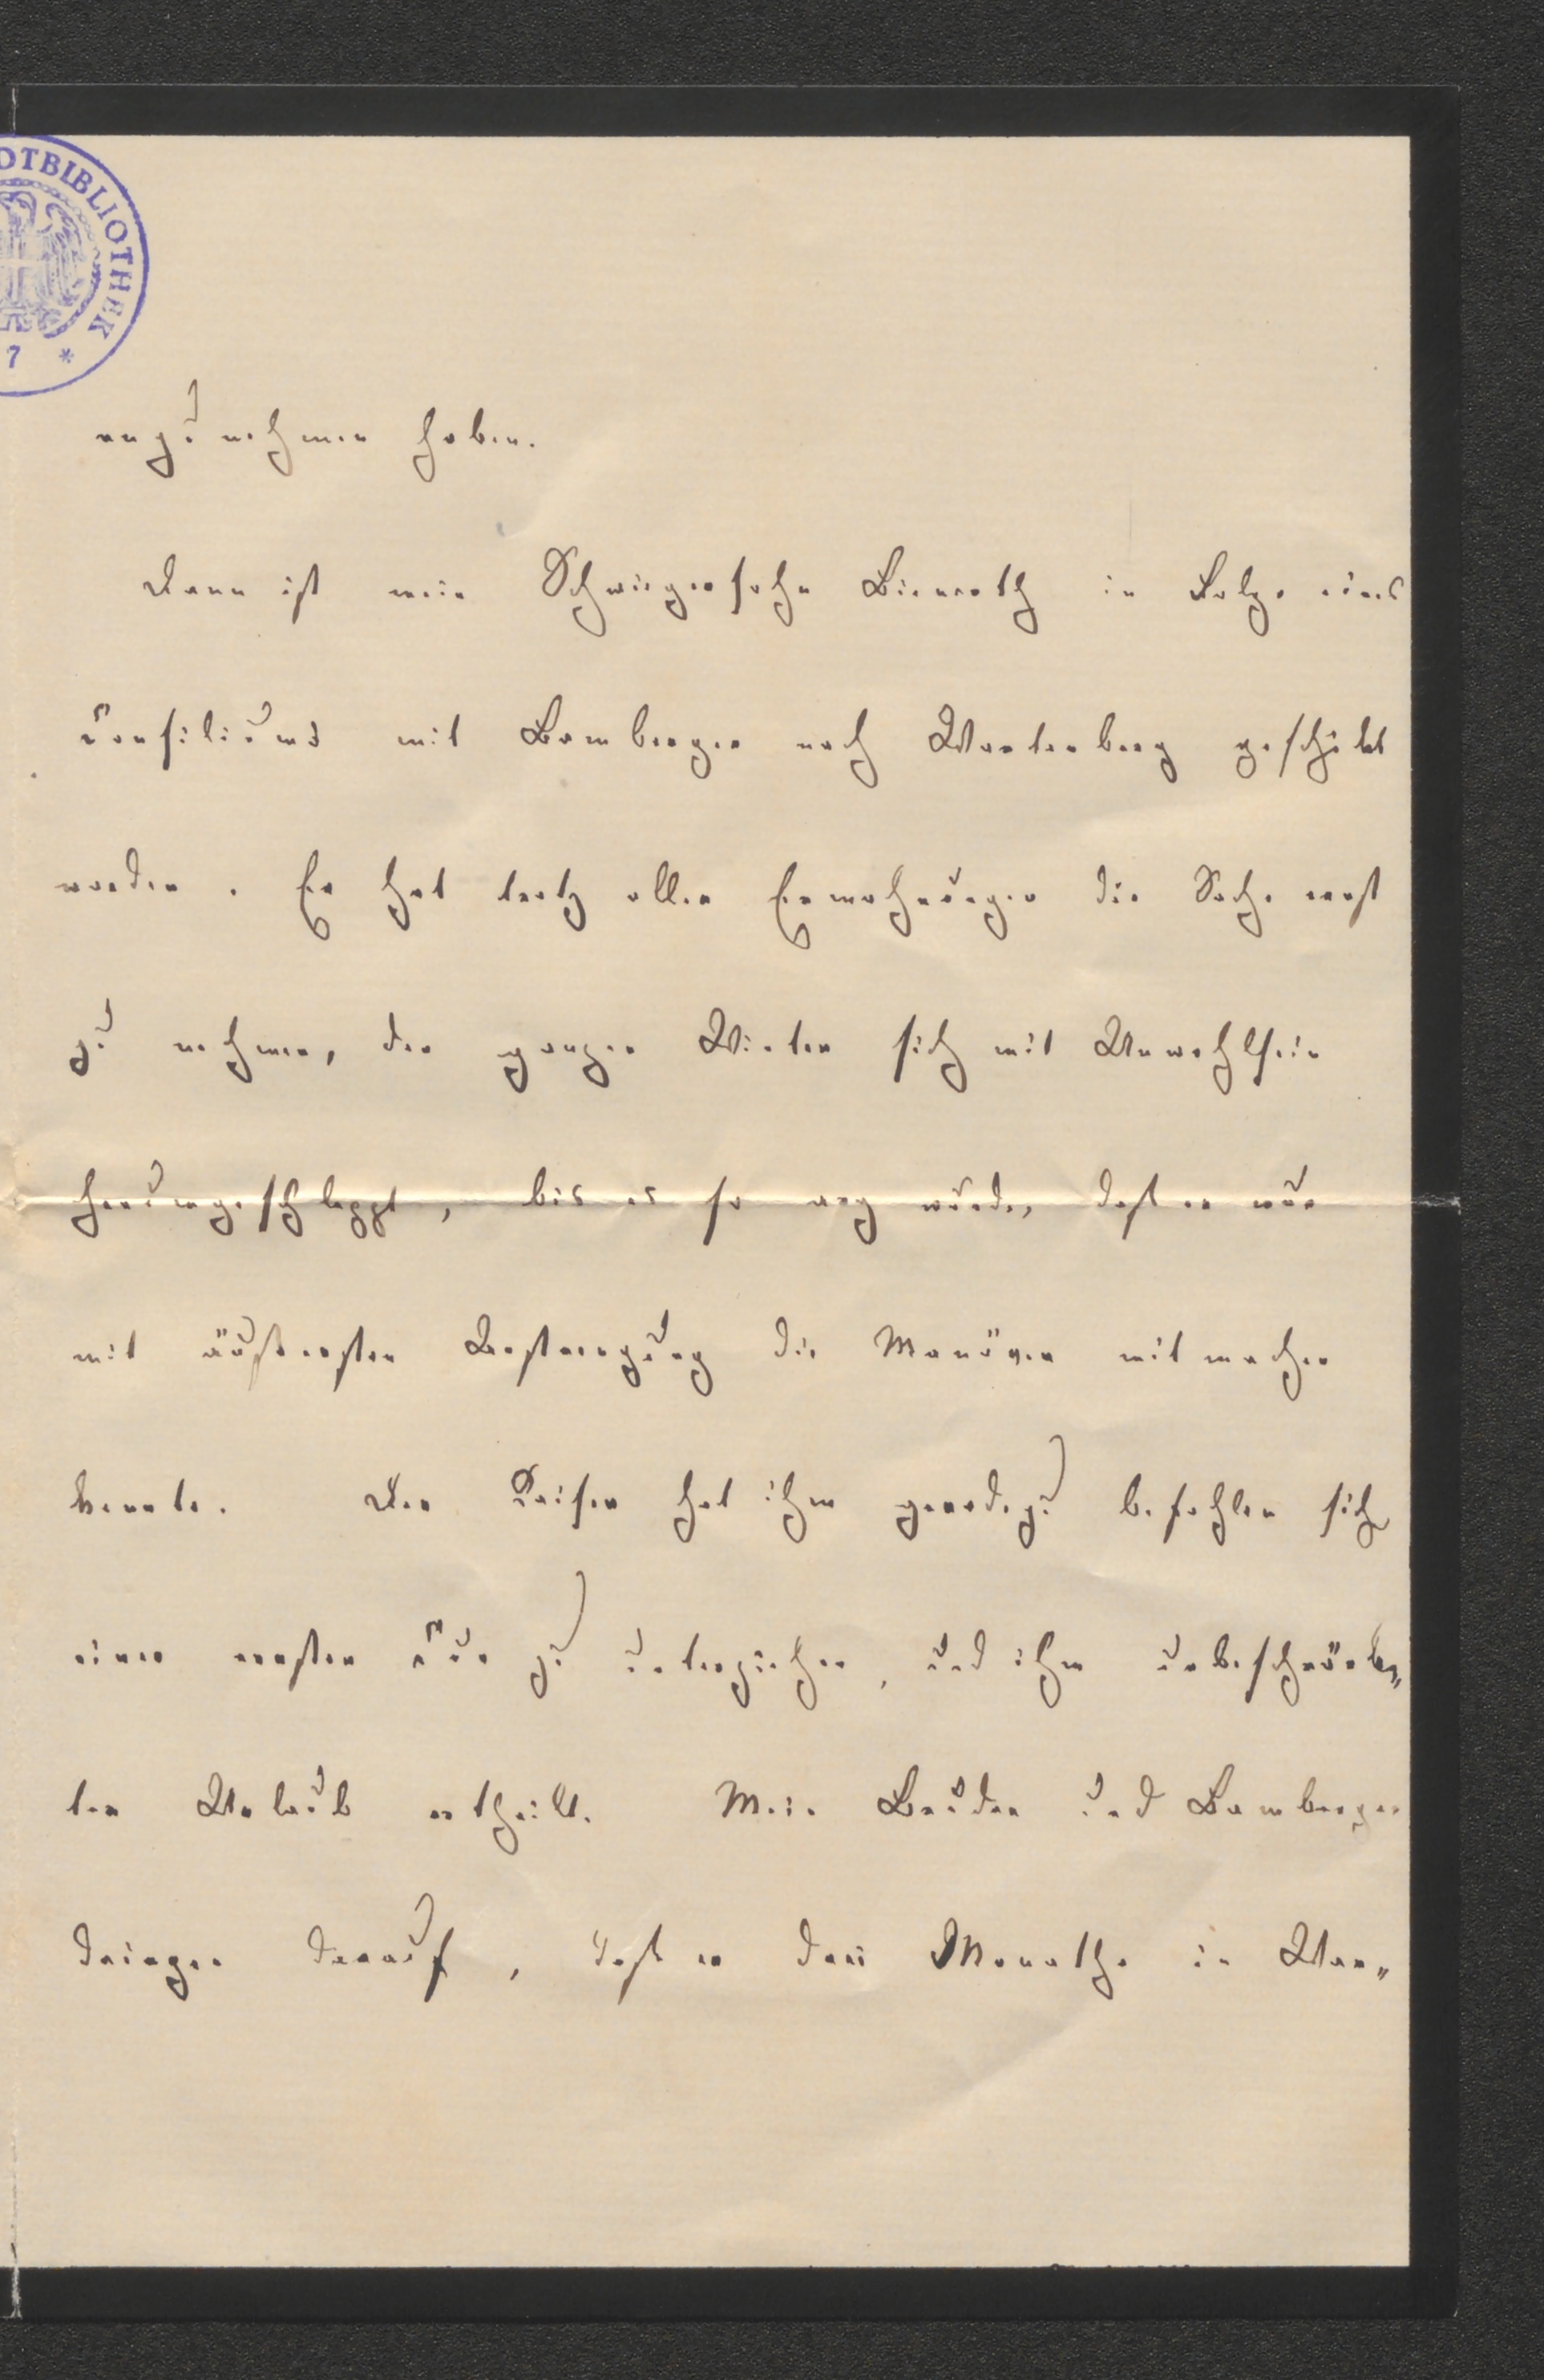 OTBIBLIOTHEK
7 *
anzunehmen haben.
Dann ist mein Schwiegersohn Bienerth in Folge eines
Consiliums mit Bamberger nach Wartenberg geschikt
worden. Er hat trotz aller Ermahnungen die Sache ernst
zu nehmen, den ganzen Winter sich mit Unwohlsein
herumgeschleppt, bis es so arg wurde, daß er nur
mit äußerster Anstrengung die Manöver mitmachen
konnte. Der Kaiser hat ihm geradezu befohlen sich
einer ernsten Cur zu unterziehen, und ihm unbeschränk„
ten Urlaub ertheilt. Mein Bruder und Bamberger
dringen darauf, daß er drei Monathe in War„